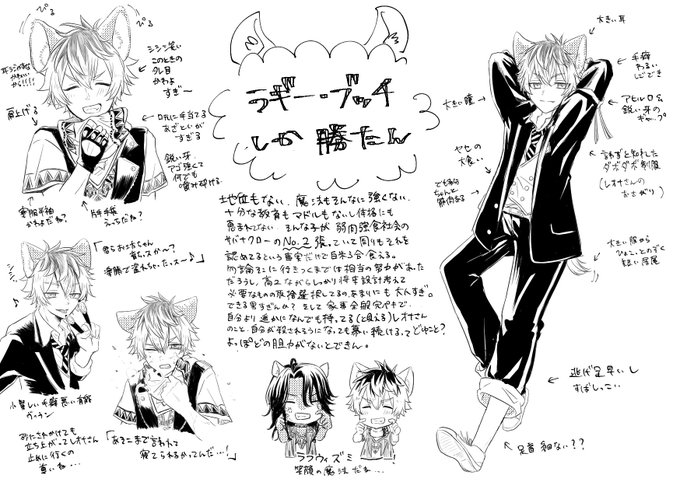 ぴる
ぴる
シシシ笑い
このときの
タレ目
かわよ
すぎ〜
肩上げる
口元に手当てる
あざといが
すぎる
鋭い牙
アゴ強くて
何でも
噛み砕ける
片手袋
えっちだね?
ラギー・ブッチ
しか勝たん
大きい耳
手癖
わるい
しごでき
大きい瞳
アヒル口&
鋭い牙の
ギャップ
ヤセの
大食い
でも実は
ちゃんと
筋肉ある
言わずと知れた
ダボダボ制服
(レオナさんの
おさがり)
大きい服から
ひょこっとのぞく
短い尾尻
逃げ足早いし
すばしっこい
足首細ない??
地位もない、魔法もそんなに強くない、
十分な教育もマドルもないし体格にも
恵まれてない そんな子が 弱肉強食社会の
サバナクローのNo.2張っていて周りもそれを
認めてるという事実だけで白米3合食える。
勿論そこに行きつくまで相当の努力があった
だろうし、高2ながらしっかり将来設計考えて
必要なもの取捨選択してるの、あまりにも大人すぎ。
できる男すぎんか? そして家事全般完ペキで、
自分より遥かになんでも持ってる(と思える)レオナさん
のこと、自分が殺されそうになっても慕い続けるってどゆこと?
よっぽどの胆力がないとできん。
シシッ
「君らお坊ちゃん
育ちっスか〜?
簡単で助かったっスー♪」
小賢しい手癖悪い有能
ヴィラン
「あそこまで言われて
寝てられるかってんだ…!」
おこされかけても
立ち上がってレオナさん
止めに行くの
尊いね…
ラフウィズミー
笑顔の魔法だよ…